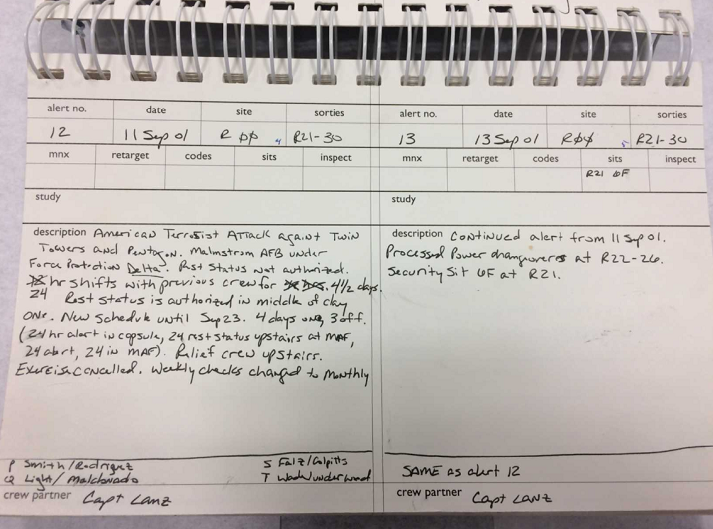 alert no. date site sorties
12 11 Sep 01 R ØØ 4 R21-30
mnx retarget codes sits inspect
study
description American Terrorist Attack against Twin
Towers and Pentagon. Malmstrom AFB under
Force Protection Delta. Rest Status not authorized.
hr shifts with previous crew for 4 1/2 days.
24 Rest status is authorized in middle of day
one. New Schedule until Sep 23. 4 days on, 3 off.
(24 hr alert in capsule, 24 rest status upstairs at MAF,
24 alert, 24 in MAF). Relief crew upstairs.
Exercise cancelled. Weekly checks changed to Monthly
P Smith/Rodriguez S Falz/Colpitts
Q Light/Maldonado T Wade/underwood
crew partner Capt Lanz
alert no. date site sorties
13 13 Sep 01 RØØ 5 R21-30
mnx retarget codes sits inspect
R21 6F
study
description Continued alert from 11 Sep 01.
Processed Power changeovers at R22-26.
Security Sit 6F at R21.
SAME as alert 12
crew partner Capt Lanz